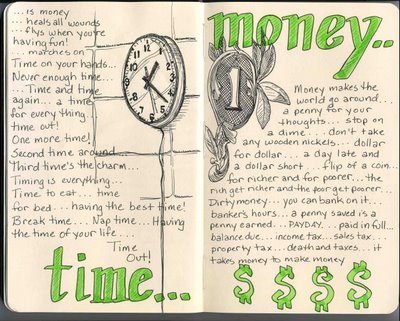 ... is money
... heals all wounds
... flys when you're
having fun!
... marches on
Time on your hands...
Never enough time...
... Time and time
again... a time
for every thing.
time out!
One more time!
Second time around...
Third time's the charm...
Timing is everything...
Time to eat... time
for bed... having the best time!
Break time... Nap time... Having
the time of your life....
Time
Out!
time...
12
1
2
3
4
5
6
7
8
9
10
11
money..
1
Money makes the
world go around...
a penny for your
thoughts... stop on
a dime... don't take
any wooden nickels... dollar
for dollar... a day late and
a dollar short... flip of a coin...
for richer and for poorer... the
rich get richer and the poor get poorer...
Dirty money... you can bank on it...
banker's hours... a penny saved is a
penny earned... PAYDAY... paid in full...
balance due... income tax... sales tax...
property tax... death and taxes... it
takes money to make money
$ $ $ $